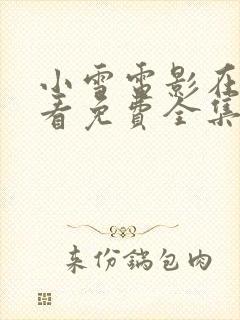 小雪雷影在
看免费全集
来份锅包肉